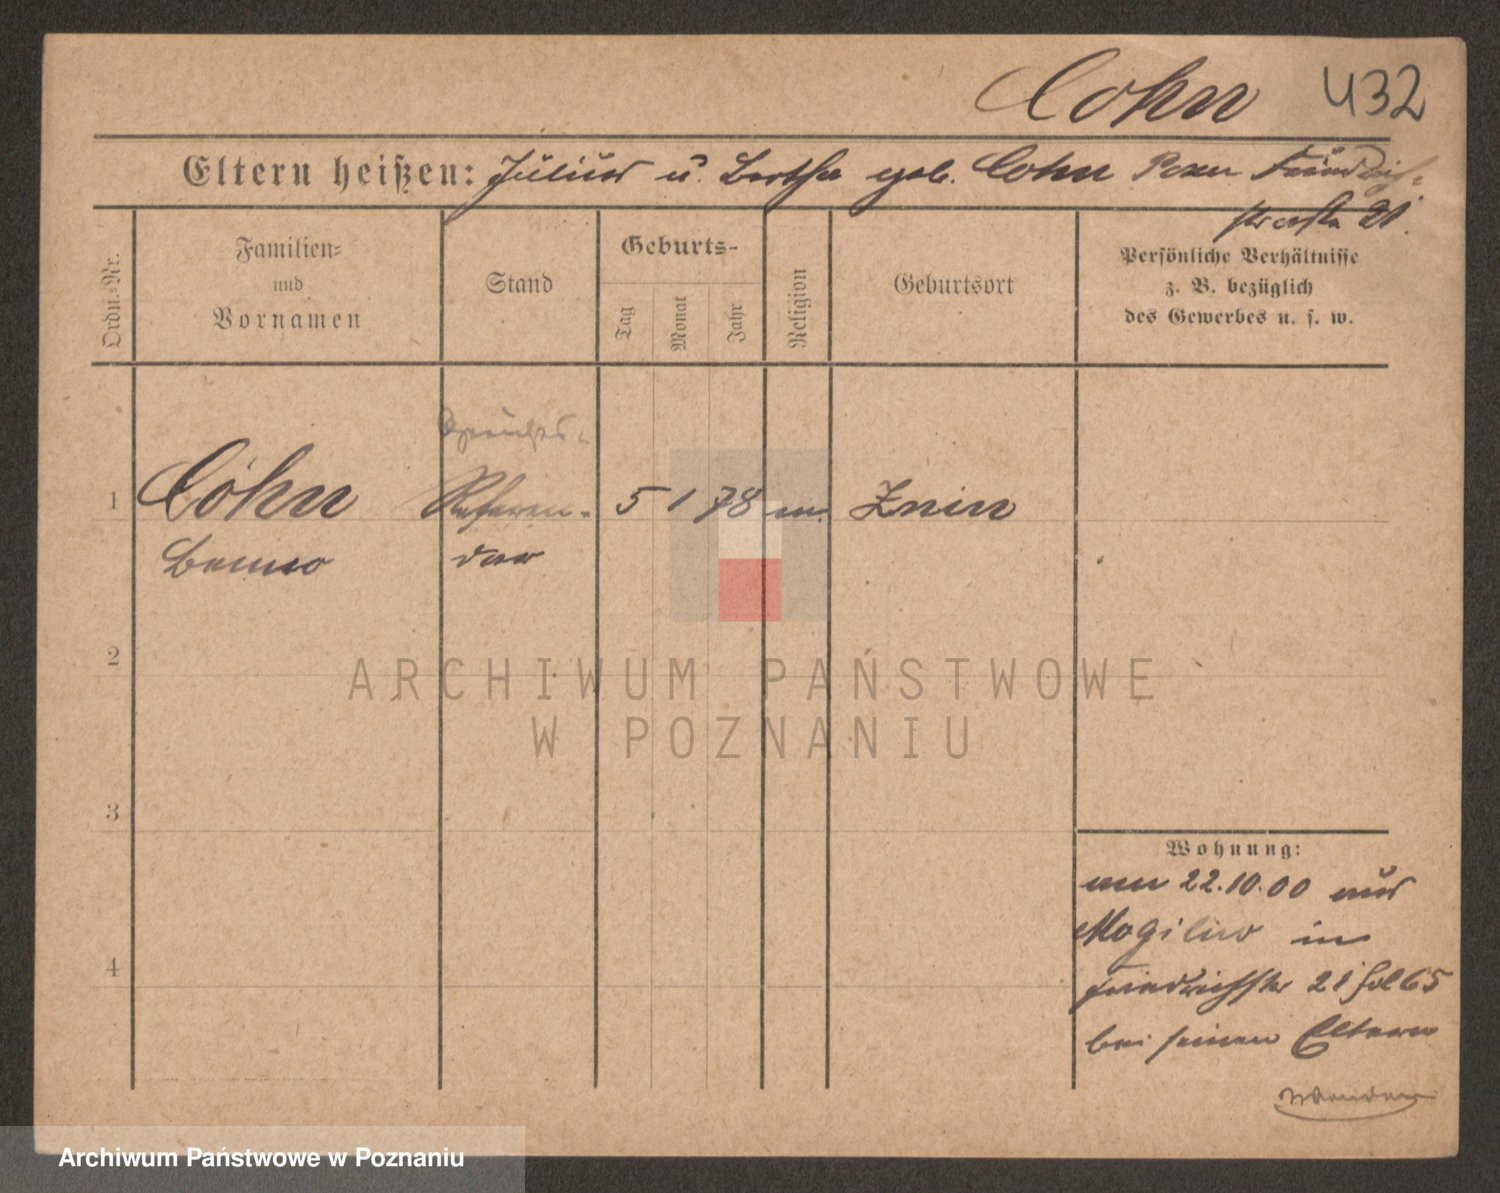 Cohn 432
Eltern heißen: Julius u. Bertha geb. Cohn Posen Friedrich-
straße 21.
Ordn.-Nr.
Familien-
und
Vornamen
Stand
Geburts-
Tag
Monat
Jahr
Religion
Geburtsort
Persönliche Verhältnisse
z. B. bezüglich
des Gewerbes u. s. w.
Gerichts-
1 Cohn Referen- 5 1 78 m. Znin
Benno dar
2
3
4
Wohnung:
am 22.10.00 aus
Mogilno in
Friedrichstr 21 Fol 65
bei seinen Eltern
ARCHIWUM PAŃSTWOWE
W POZNANIU
Archiwum Państwowe w Poznaniu